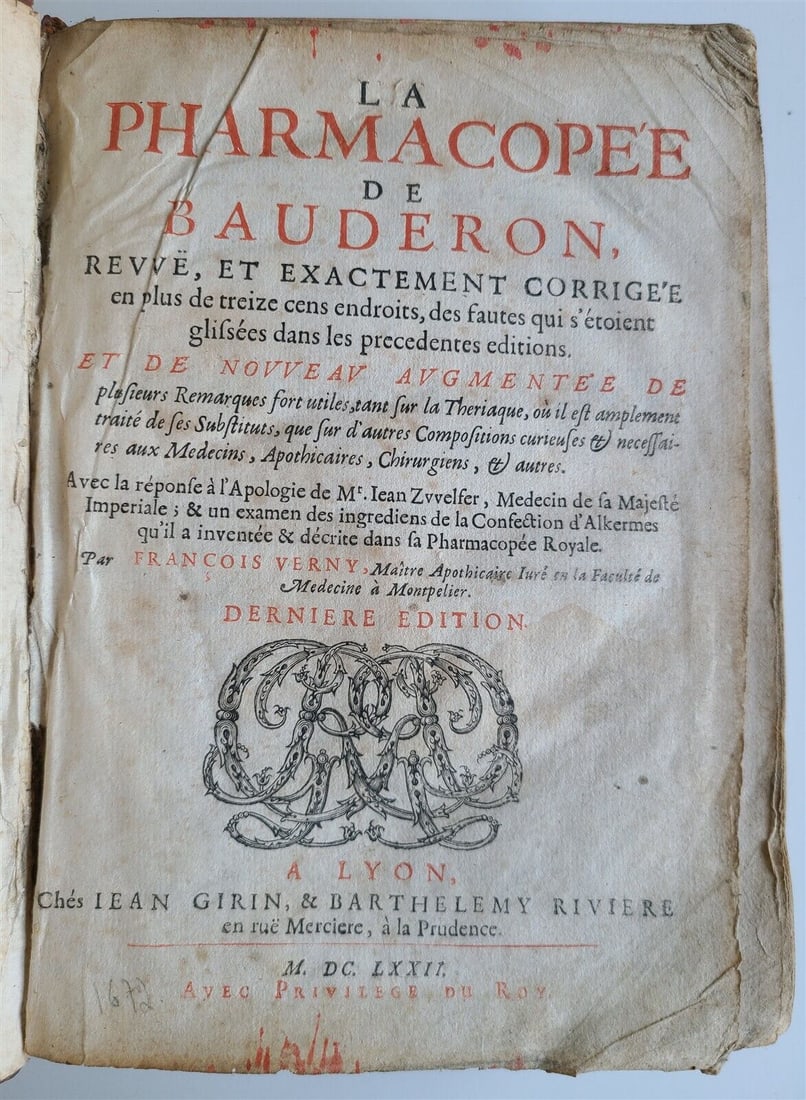 LA
PHARMACOPE'E
DE
BAUDERON,
REVVË, ET EXACTEMENT CORRIGE'E
en plus de treize cens endroits, des fautes qui s'étoient
gliſsées dans les precedentes editions.
ET DE NOVVEAV AVGMENTE'E DE
pluſieurs Remarques fort utiles, tant ſur la Theriaque, où il eſt amplement
traité de ſes Subſtituts, que ſur d'autres Compoſitions curieuſes & neceſſai-
res aux Medecins, Apothicaires, Chirurgiens, & autres.
Avec la réponſe à l'Apologie de Mr. Iean Zvvelfer, Medecin de ſa Majeſté
Imperiale; & un examen des ingrediens de la Confection d'Alkermes
qu'il a inventée & décrite dans ſa Pharmacopée Royale.
Par FRANÇOIS VERNY, Maître Apothicaire Iuré en la Faculté de
Medecine à Montpelier.
DERNIERE EDITION.
A LYON,
Chés IEAN GIRIN, & BARTHELEMY RIVIERE
en ruë Merciere, à la Prudence.
M. DC. LXXII.
AVEC PRIVILEGE DU ROY.
1672